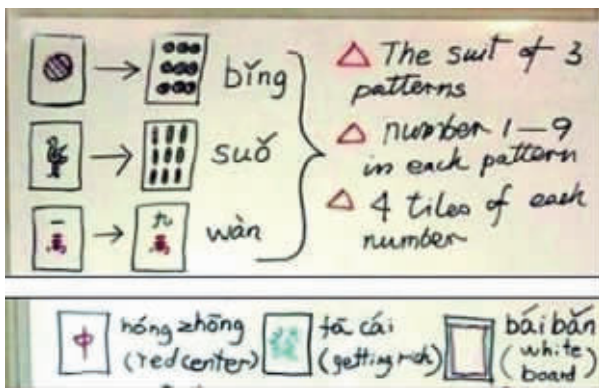 bǐng
suǒ
一
九
wàn
△ The suit of 3
patterns
△ number 1–9
in each pattern
△ 4 tiles of each
number
中
hóng zhōng
(red center)
fā cái
(getting rich)
bái bǎn
(white
board)